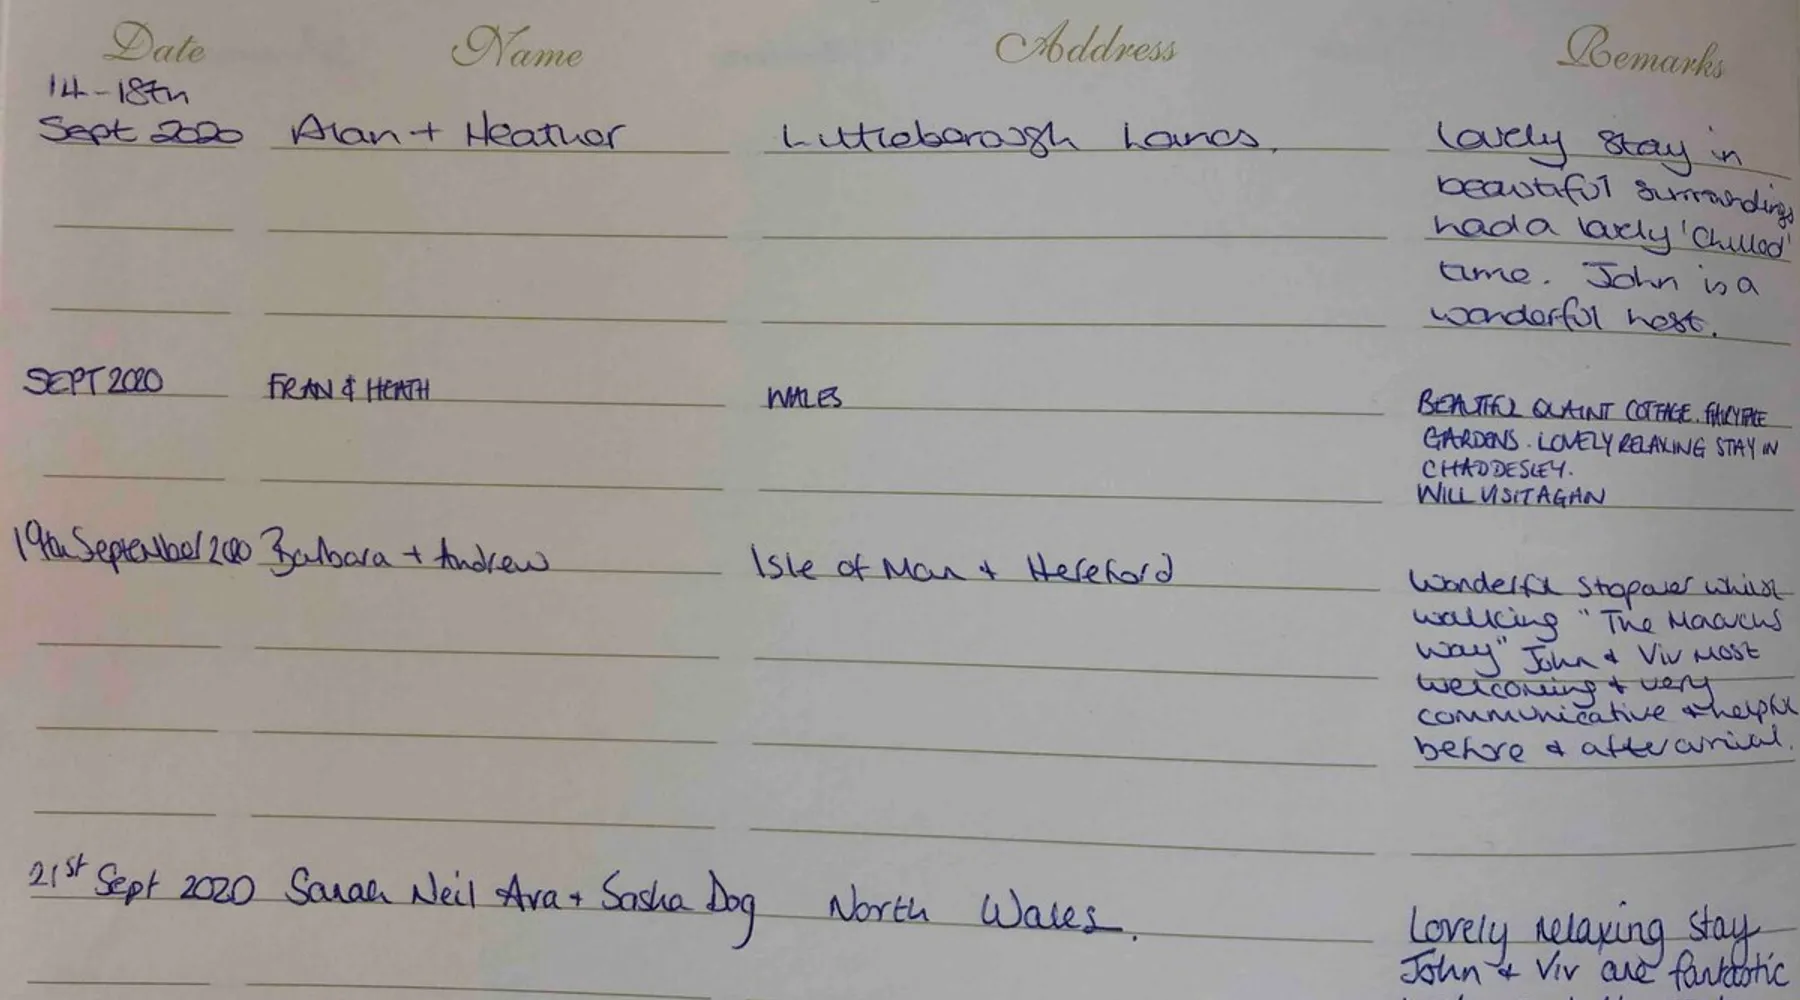 Date Name Address Remarks
14-18th
Sept 2020 Alan + Heather Littleborough Lancs. Lovely stay in
beautiful surrondings
had a lovely 'Chilled'
time. John is a
wonderful host.
SEPT 2020 FRAN & HEATH WALES BEAUTIFUL QUAINT COTTAGE.
GARDENS. LOVELY RELAXING STAY IN
CHADDESLEY.
WILL VISIT AGAN
19th September 2020 Barbara + Andrew Isle of Man + Hereford Wonderful stopover whilst
walking "The
Way" John + Viv most
welcoming + very
communicative + helpful
before & after arrival.
21st Sept 2020 Sarah Neil Ava + Sasha Dog North Wales. Lovely relaxing stay
John + Viv are fantastic